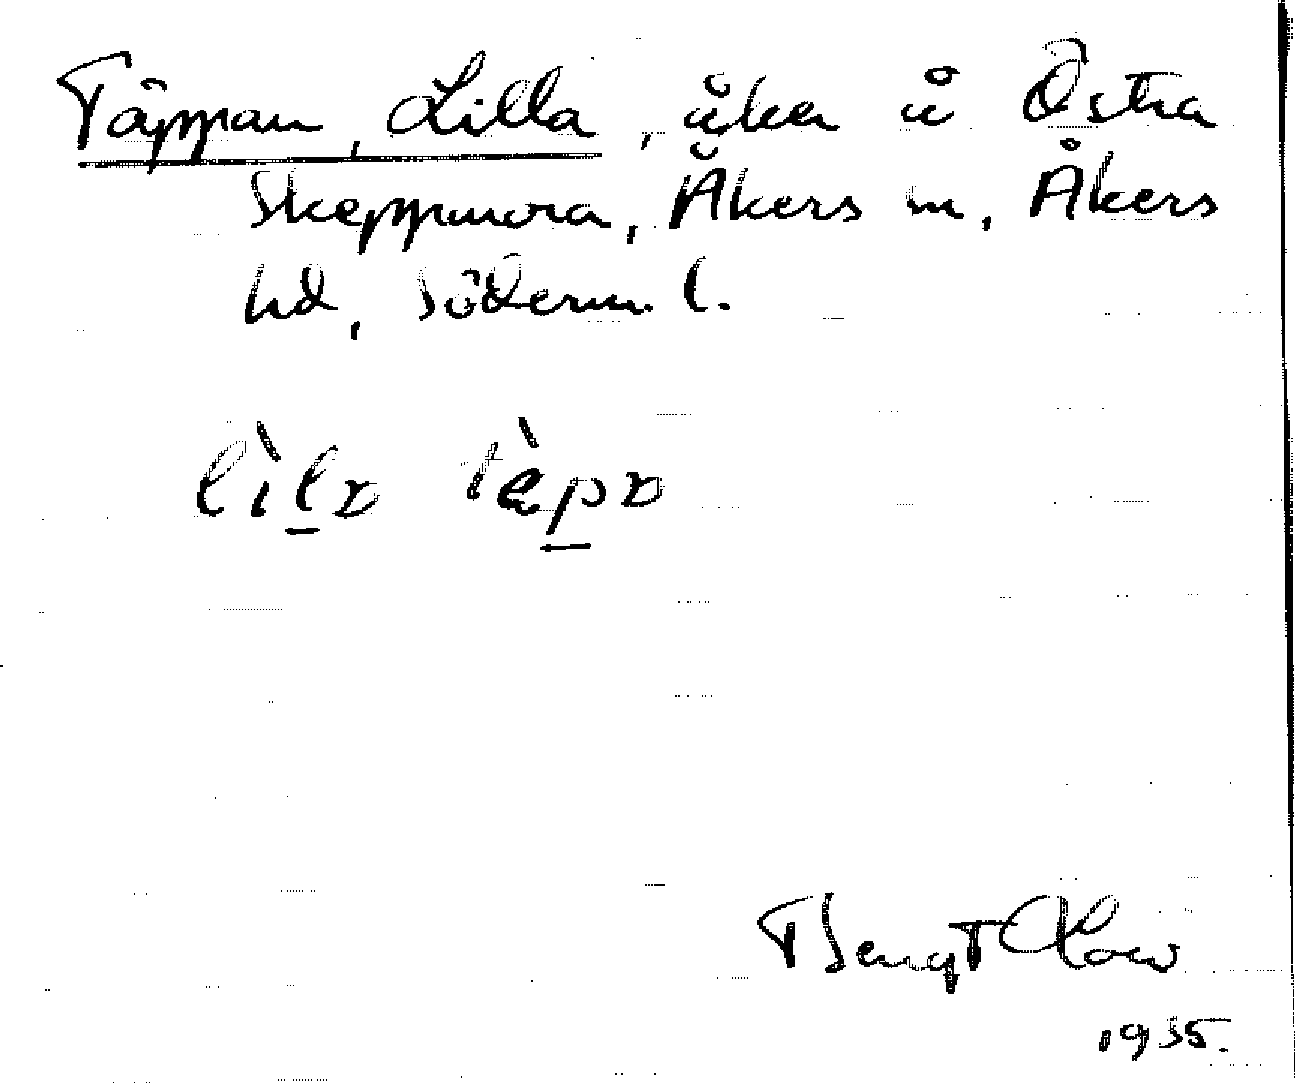 Täppan, Lilla, åker å Östra
Skeppmora, Åkers sn, Åkers
hd, Söderm. l.
lìlɒ tæ̀pɒ
Bengt
1935.